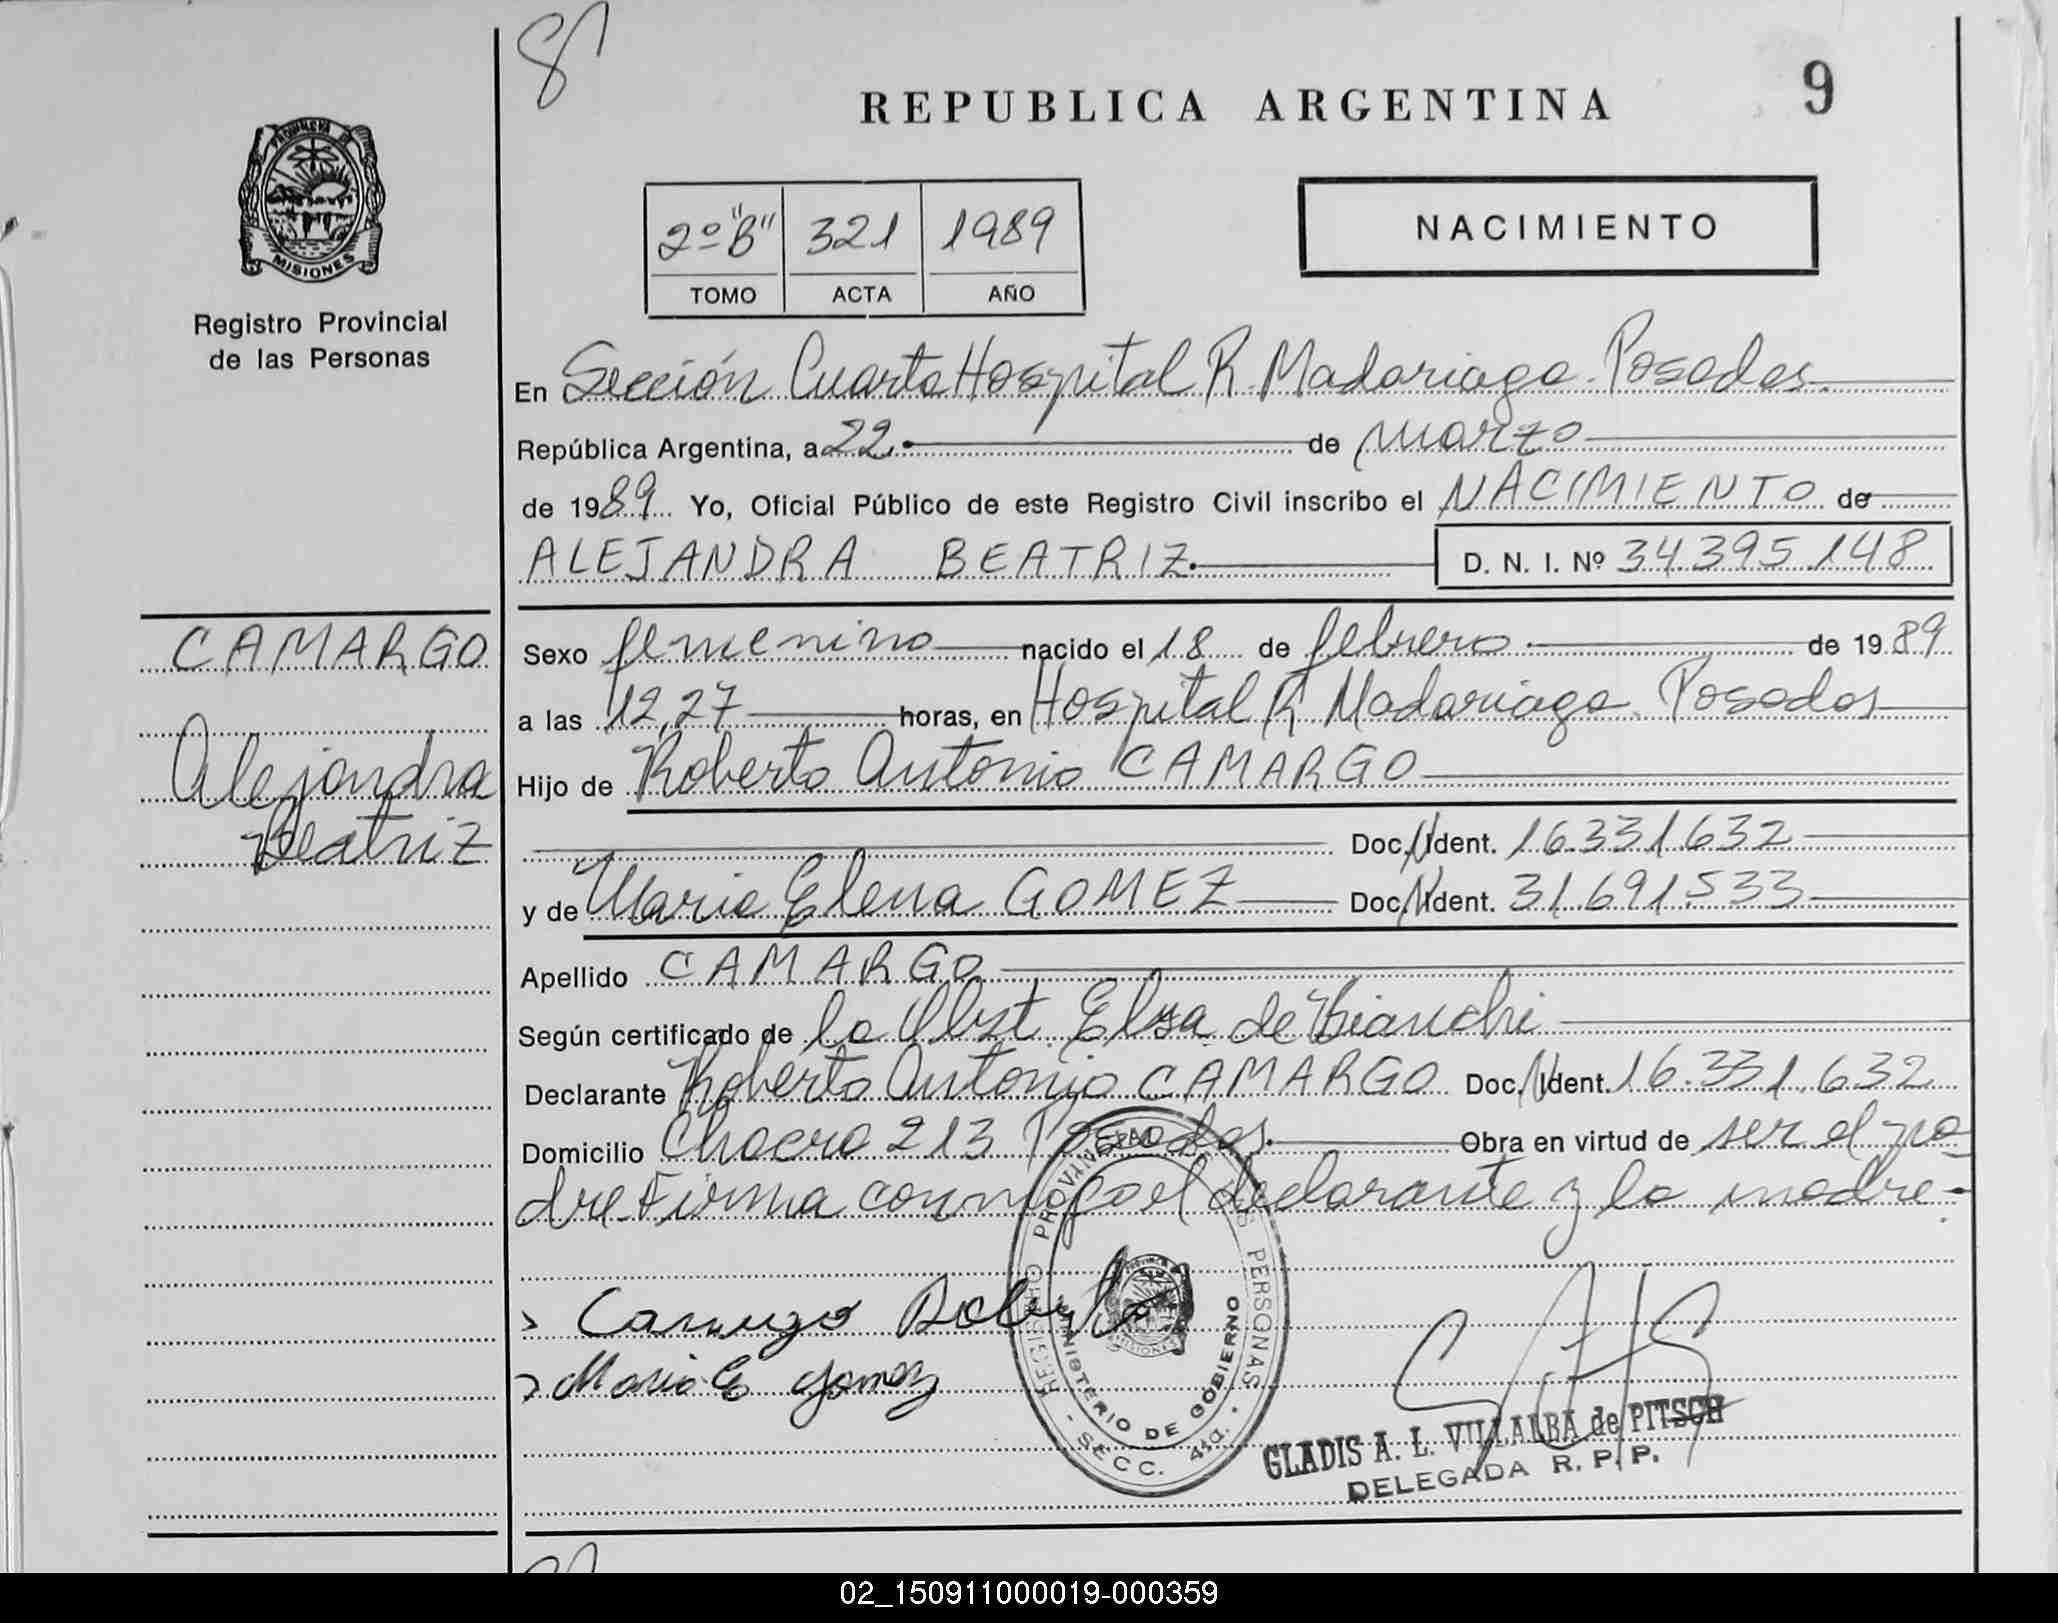 9
REPUBLICA ARGENTINA
PROVINCIA DE
MISIONES
Registro Provincial
de las Personas
2º "B" 321 1989
TOMO ACTA AÑO
NACIMIENTO
En Sección Cuarta Hospital R. Madariaga. Posadas.
República Argentina, a 22. de marzo
de 1989 Yo, Oficial Público de este Registro Civil inscribo el NACIMIENTO de
ALEJANDRA BEATRIZ. D. N. I. Nº 34.395.148
CAMARGO
Alejandra
Beatriz
Sexo femenino nacido el 18 de febrero de 1989
a las 12,27 horas, en Hospital R. Madariaga. Posadas
Hijo de Roberto Antonio CAMARGO
Doc. Ident. 16.331.632
y de Maria Elena GOMEZ Doc. Ident. 31.691.533
Apellido CAMARGO
Según certificado de la Obst. Elsa de Bianchi
Declarante Roberto Antonio CAMARGO Doc. Ident. 16.331.632
Domicilio 213 Posadas. Obra en virtud de ser el pa
dre. Firma conmigo el declarante y la madre.
Camargo Roberto
Maria E Gomez
REGISTRO PROVINCIAL DE LAS PERSONAS
MINISTERIO DE GOBIERNO
- SECC. 4ta. -
GLADIS A. L. VILLALBA de PITSCH
DELEGADA R. P. P.
02_150911000019-000359